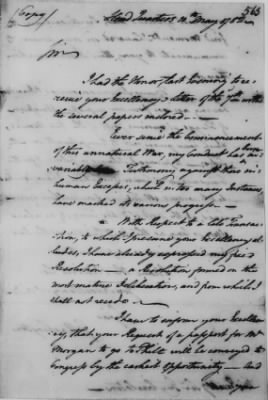 (Copy) 563
Head Quarters 10th May 1782
Sir
I had the Honor last Evening to re-
ceive your Excellency's Letter of the 7th with
the several papers inclosed —
Ever since the Commencement
of this unnatural War, my Conduct has born
invariable Testimony against those in-
human Excesses, which in too many Instances
have marked its various progress —
With Respect to a late Transac-
tion, to which I presume your Excellency al-
ludes, I have already expressed my fixed
Resolution — a Resolution formed on the
most mature Deliberation, and from which I
shall not recede —
I have to inform your Excellen-
cy, that your Request of a passport for Mr
Morgan to go to Phila will be conveyed to
Congress by the earliest opportunity — And